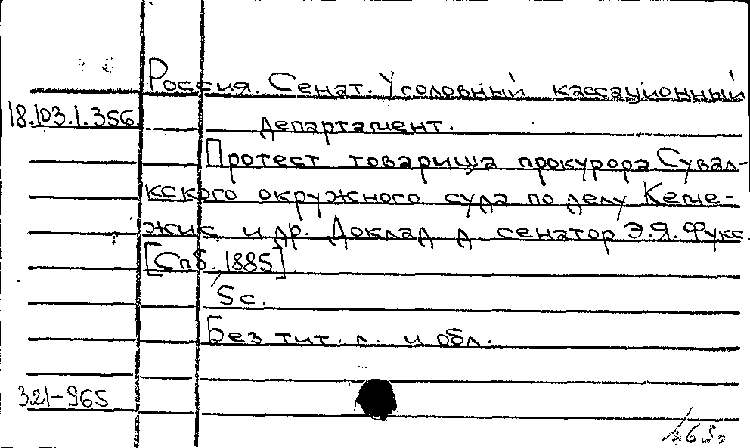 Россия. Сенат. Уголовный кассационный
18.103.1.356
департамент.
Протест товарища прокурора Сувал-
кского окружного суда по делу
и др. Доклад д. сенатор Э.Я. Фукс.
[Спб. 1885]
5 с.
Без тит. л. и обл.
321-965